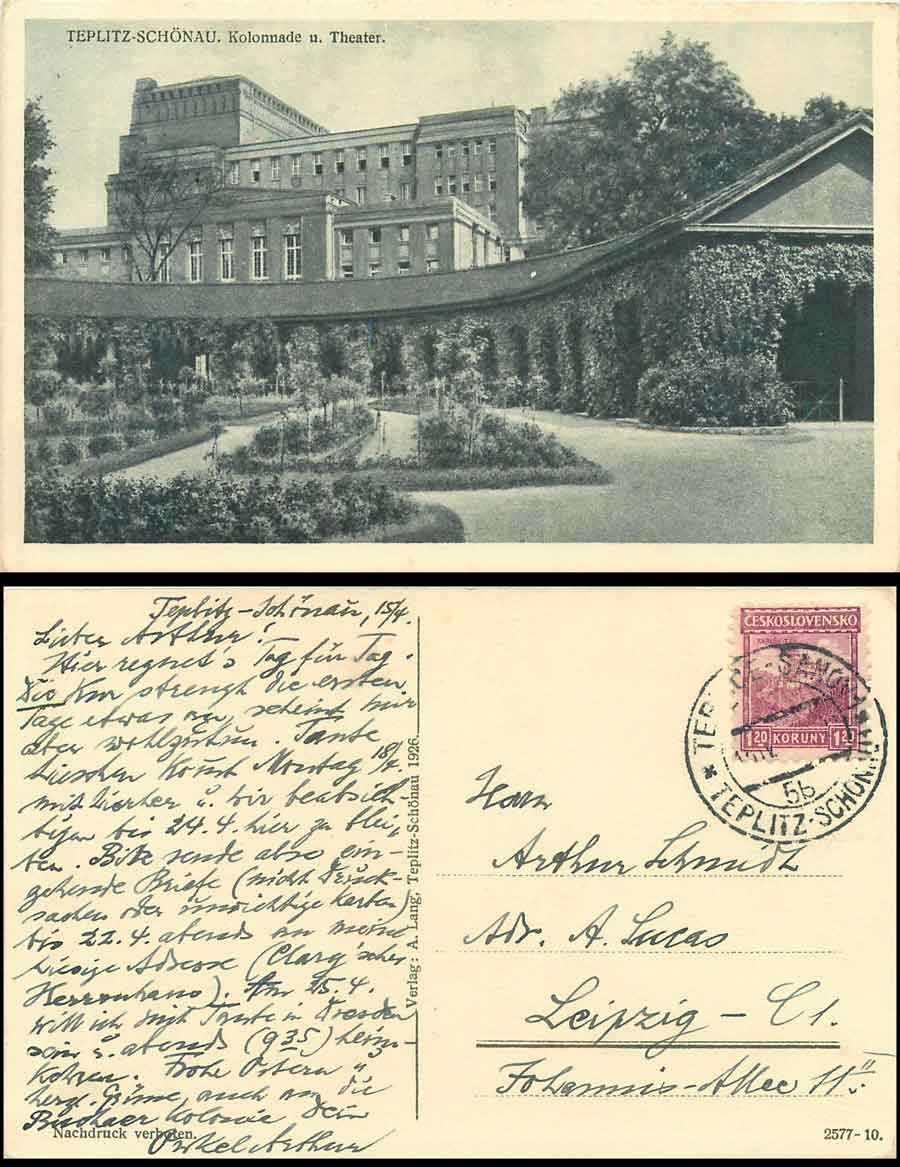 TEPLITZ-SCHÖNAU. Kolonnade u. Theater.
Teplitz-Schönau, 15/4.
Lieber Arthur!
Hier regnet's Tag für Tag.
Die Kur strengt die ersten
Tage etwas an, scheint mir
aber wohlzutun. Tante
Lieschen kommt Montag 18/4.
mit hierher u. wir beabsich-
tigen bis 24.4. hier zu blei-
ben. Bitte sende also ein-
gehende Briefe (nicht Druck-
sachen oder unwichtige Karten)
bis 22.4. abends an meine
hiesige Adresse (Clary'sches
Herrenhaus). Am 25.4.
will ich mit Tante in Dresden
sein u. abends (9 35) heim-
kehren. Frohe Ostern u.
herzl. Grüsse, auch an die
Kolonie Dein
Onkel Arthur
Nachdruck verboten.
Verlag: A. Lang, Teplitz-Schönau 1926.
ČESKOSLOVENSKO
1 20 KORUNY 1 20
TEPLICE-ŠANOV 1
5b
* TEPLITZ-SCHÖNAU 1 *
Herrn
Arthur Schmidt
Adr. A. Lucas
Leipzig - C 1.
Johannis-Allee 11 II.
2577-10.